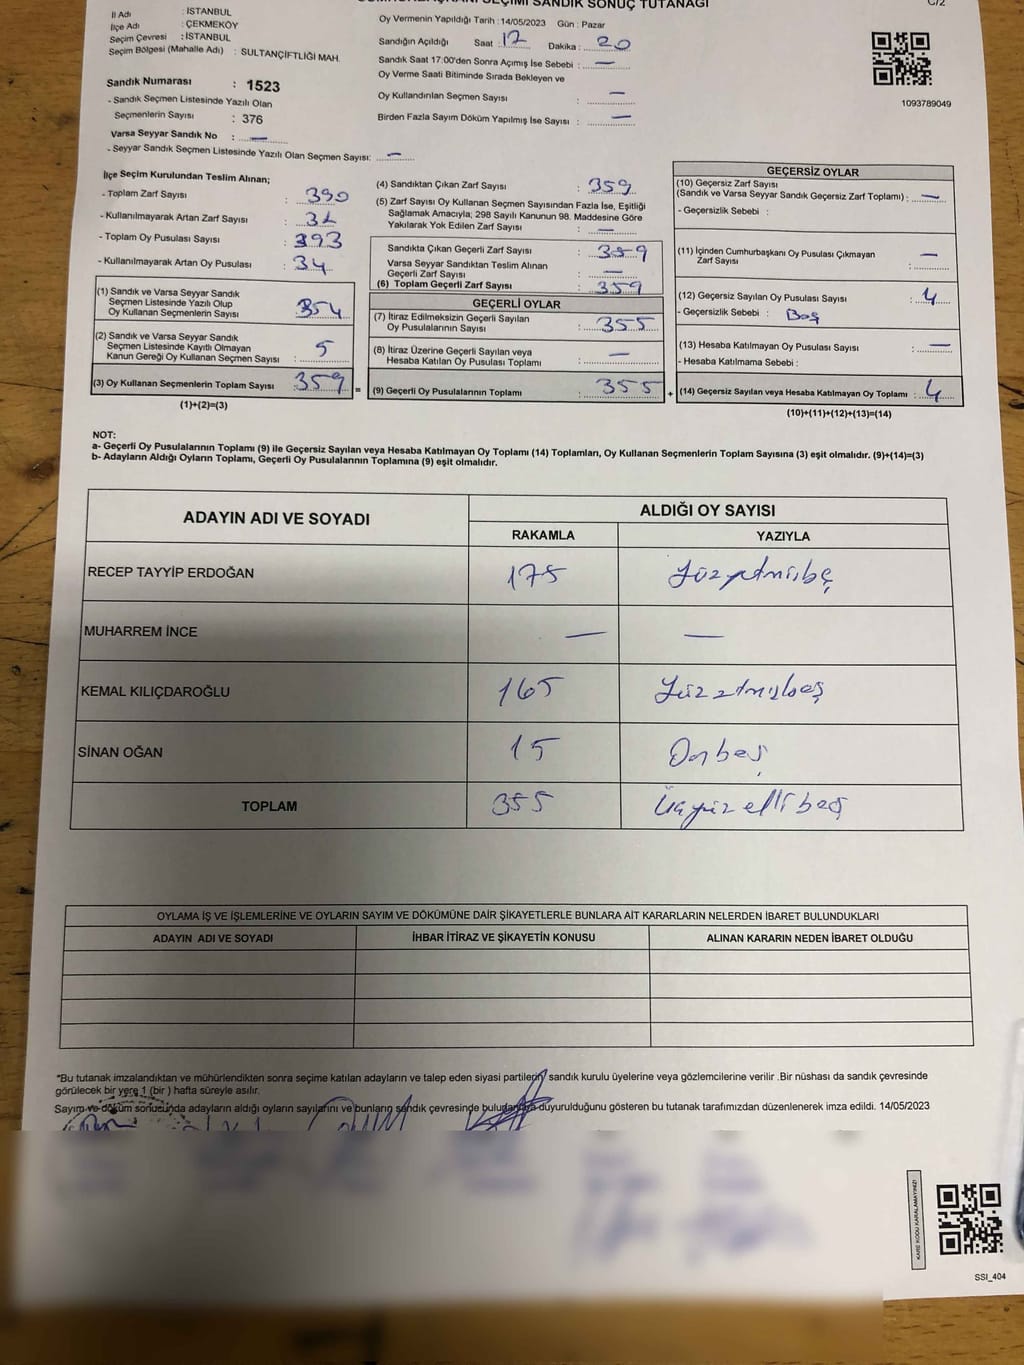 SEÇİMİ SANDIK SONUÇ TUTANAĞI
C/2
İl Adı : İSTANBUL
İlçe Adı : ÇEKMEKÖY
Seçim Çevresi : İSTANBUL
Seçim Bölgesi (Mahalle Adı) : SULTANÇİFTLİĞİ MAH.
Sandık Numarası : 1523
- Sandık Seçmen Listesinde Yazılı Olan
Seçmenlerin Sayısı : 376
Varsa Seyyar Sandık No : —
- Seyyar Sandık Seçmen Listesinde Yazılı Olan Seçmen Sayısı: —
Oy Vermenin Yapıldığı Tarih : 14/05/2023 Gün : Pazar
Sandığın Açıldığı Saat : 17 Dakika : 20
Sandık Saat 17:00'den Sonra Açımış İse Sebebi : —
Oy Verme Saati Bitiminde Sırada Bekleyen ve
Oy Kullandırılan Seçmen Sayısı : —
Birden Fazla Sayım Döküm Yapılmış İse Sayısı : —
1093789049
İlçe Seçim Kurulundan Teslim Alınan;
- Toplam Zarf Sayısı : 390
- Kullanılmayarak Artan Zarf Sayısı : 31
- Toplam Oy Pusulası Sayısı : 393
- Kullanılmayarak Artan Oy Pusulası : 34
(1) Sandık ve Varsa Seyyar Sandık
Seçmen Listesinde Yazılı Olup
Oy Kullanan Seçmenlerin Sayısı : 354
(2) Sandık ve Varsa Seyyar Sandık
Seçmen Listesinde Kayıtlı Olmayan
Kanun Gereği Oy Kullanan Seçmen Sayısı : 5
(3) Oy Kullanan Seçmenlerin Toplam Sayısı : 359 =
(1)+(2)=(3)
(4) Sandıktan Çıkan Zarf Sayısı : 359
(5) Zarf Sayısı Oy Kullanan Seçmen Sayısından Fazla İse, Eşitliği
Sağlamak Amacıyla; 298 Sayılı Kanunun 98. Maddesine Göre
Yakılarak Yok Edilen Zarf Sayısı : —
Sandıkta Çıkan Geçerli Zarf Sayısı : 359
Varsa Seyyar Sandıktan Teslim Alınan
Geçerli Zarf Sayısı : —
(6) Toplam Geçerli Zarf Sayısı : 359
GEÇERLİ OYLAR
(7) İtiraz Edilmeksizin Geçerli Sayılan
Oy Pusulalarının Sayısı : 355
(8) İtiraz Üzerine Geçerli Sayılan veya
Hesaba Katılan Oy Pusulası Toplamı : —
(9) Geçerli Oy Pusulalarının Toplamı : 355 +
GEÇERSİZ OYLAR
(10) Geçersiz Zarf Sayısı
(Sandık ve Varsa Seyyar Sandık Geçersiz Zarf Toplamı) : —
- Geçersizlik Sebebi :
(11) İçinden Cumhurbaşkanı Oy Pusulası Çıkmayan
Zarf Sayısı : —
(12) Geçersiz Sayılan Oy Pusulası Sayısı : 4
- Geçersizlik Sebebi : Boş
(13) Hesaba Katılmayan Oy Pusulası Sayısı : —
- Hesaba Katılmama Sebebi :
(14) Geçersiz Sayılan veya Hesaba Katılmayan Oy Toplamı : 4
(10)+(11)+(12)+(13)=(14)
NOT:
a- Geçerli Oy Pusulalarının Toplamı (9) ile Geçersiz Sayılan veya Hesaba Katılmayan Oy Toplamı (14) Toplamları, Oy Kullanan Seçmenlerin Toplam Sayısına (3) eşit olmalıdır. (9)+(14)=(3)
b- Adayların Aldığı Oyların Toplamı, Geçerli Oy Pusulalarının Toplamına (9) eşit olmalıdır.
ADAYIN ADI VE SOYADI
ALDIĞI OY SAYISI
RAKAMLA YAZIYLA
RECEP TAYYİP ERDOĞAN 175 Yüzyetmişbeş
MUHARREM İNCE — —
KEMAL KILIÇDAROĞLU 165 Yüzatmışbeş
SİNAN OĞAN 15 Onbeş
TOPLAM 355 Üçyüzellibeş
OYLAMA İŞ VE İŞLEMLERİNE VE OYLARIN SAYIM VE DÖKÜMÜNE DAİR ŞİKAYETLERLE BUNLARA AİT KARARLARIN NELERDEN İBARET BULUNDUKLARI
ADAYIN ADI VE SOYADI İHBAR İTİRAZ VE ŞİKAYETİN KONUSU ALINAN KARARIN NEDEN İBARET OLDUĞU
*Bu tutanak imzalandıktan ve mühürlendikten sonra seçime katılan adayların ve talep eden siyasi partilerin sandık kurulu üyelerine veya gözlemcilerine verilir .Bir nüshası da sandık çevresinde
görülecek bir yere 1 (bir ) hafta süreyle asılır.
Sayım ve döküm sonucunda adayların aldığı oyların sayılarını ve bunların sandık çevresinde duyurulduğunu gösteren bu tutanak tarafımızdan düzenlenerek imza edildi. 14/05/2023
KARE KODU KARALAMAYINIZ!
SSI_404